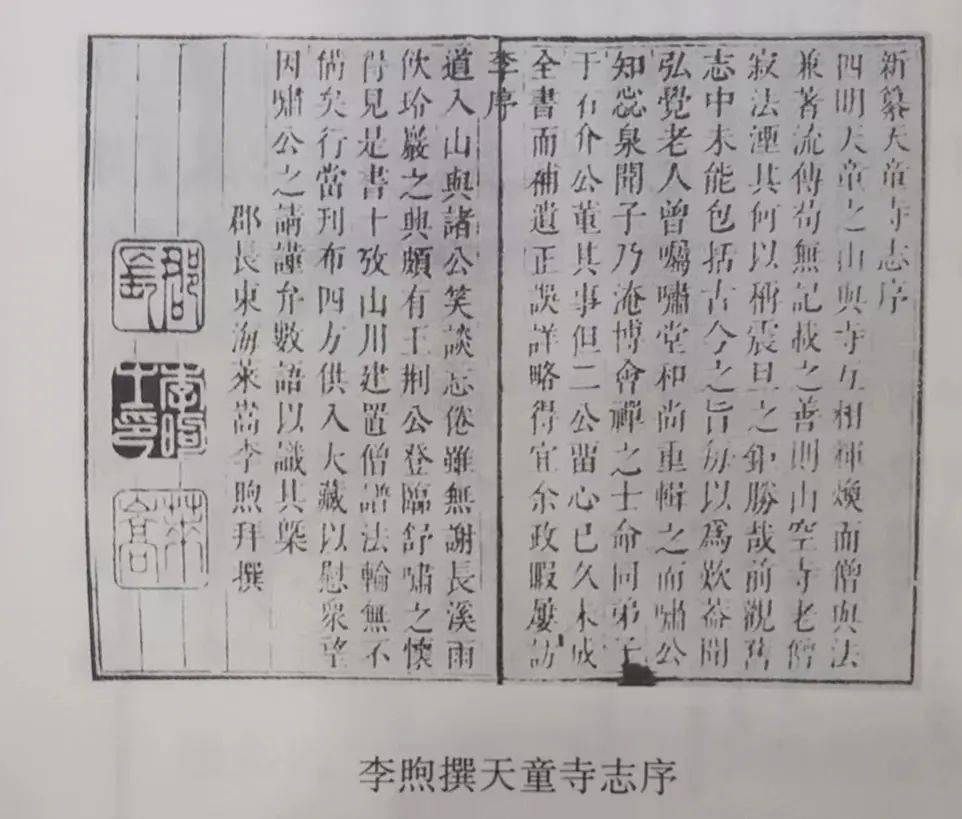 新纂天童寺志序
四明天童之山與寺互相輝煥而僧與法
兼著流傳苟無記載之善則山空寺老僧
寂法湮其何以稱震旦之鉅勝哉前觀舊
志中未能包括古今之旨每以為歉葢聞
弘覺老人曾囑嘯堂和尚重輯之而嘯公
知蕊泉聞子乃淹博會禪之士命同弟子
于石介公董其事但二公留心已久未成
全書而補遺正誤詳略得宜余政暇屢訪
李序
道入山與諸公笑談忘倦雖無謝長溪雨
伙玲巖之興頗有王荆公登臨舒嘯之懷
得見是書十攷山川建置僧譜法輪無不
備矣行當刊布四方供入大藏以慰衆望
因嘯公之請謹弁數語以識其槩
郡長東海萊嵩李煦拜撰
郡長
李煦之印
萊嵩
李煦撰天童寺志序